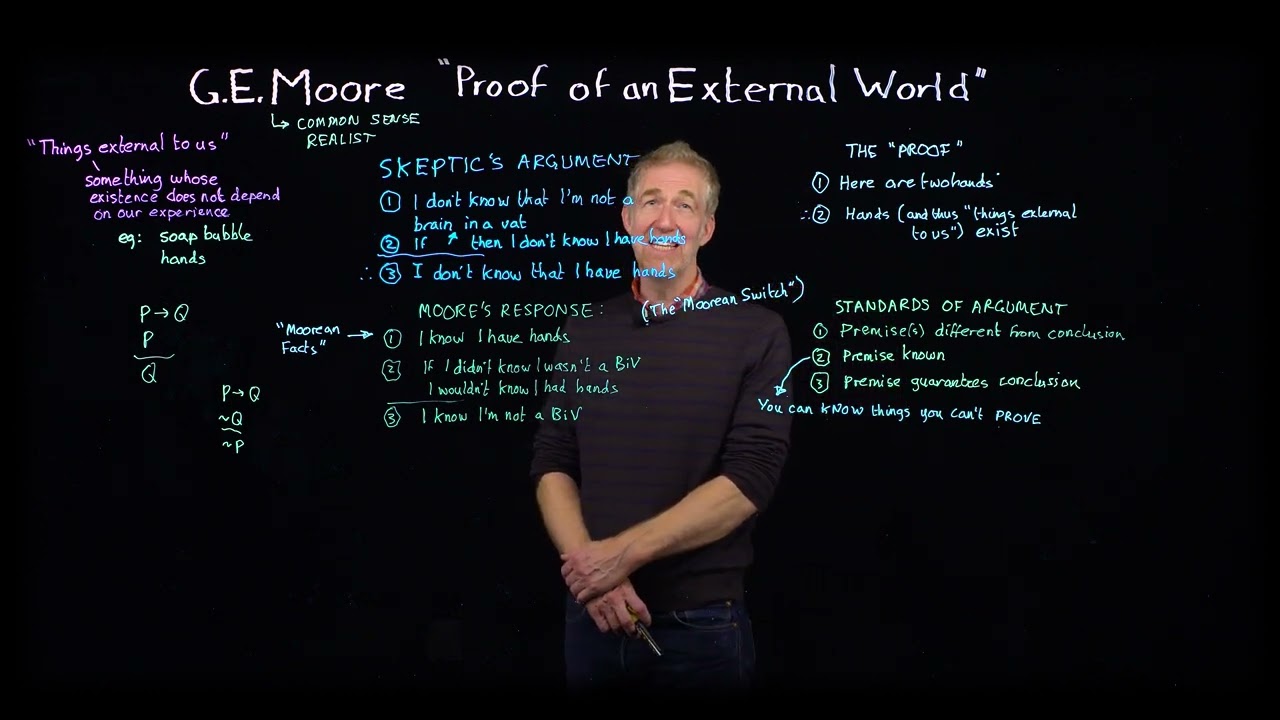 G.E. Moore "Proof of an External World"
↳ COMMON SENSE
REALIST
"Things external to us"
something whose
existence does not depend
on our experience
eg: soap bubble
hands
P→Q
P
Q
P→Q
~Q
~P
SKEPTIC'S ARGUMENT
① I don't know that I'm not a
brain in a vat
② If ↗ then I don't know I have hands
∴ ③ I don't know that I have hands
MOORE'S RESPONSE: (The "Moorean Switch")
"Moorean
Facts" →
① I know I have hands
② If I didn't know I wasn't a BiV
I wouldn't know I had hands
③ I know I'm not a BiV
THE "PROOF"
① Here are two hands
∴ ② Hands (and thus "things external
to us") exist
STANDARDS OF ARGUMENT
① Premise(s) different from conclusion
② Premise known
③ Premise guarantees conclusion
You can KNOW things you can't PROVE